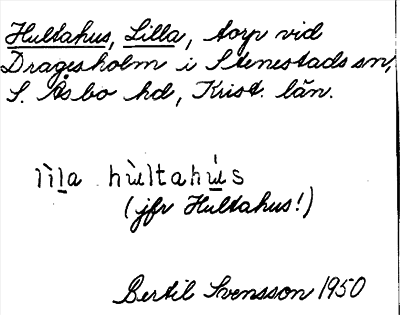 Hultahus, Lilla, torp vid
Dragesholm i Stenestads sn,
S. Åsbo hd, Krist. län.
lìla hùltahùs
(jfr Hultahus!)
Bertil Svensson 1950